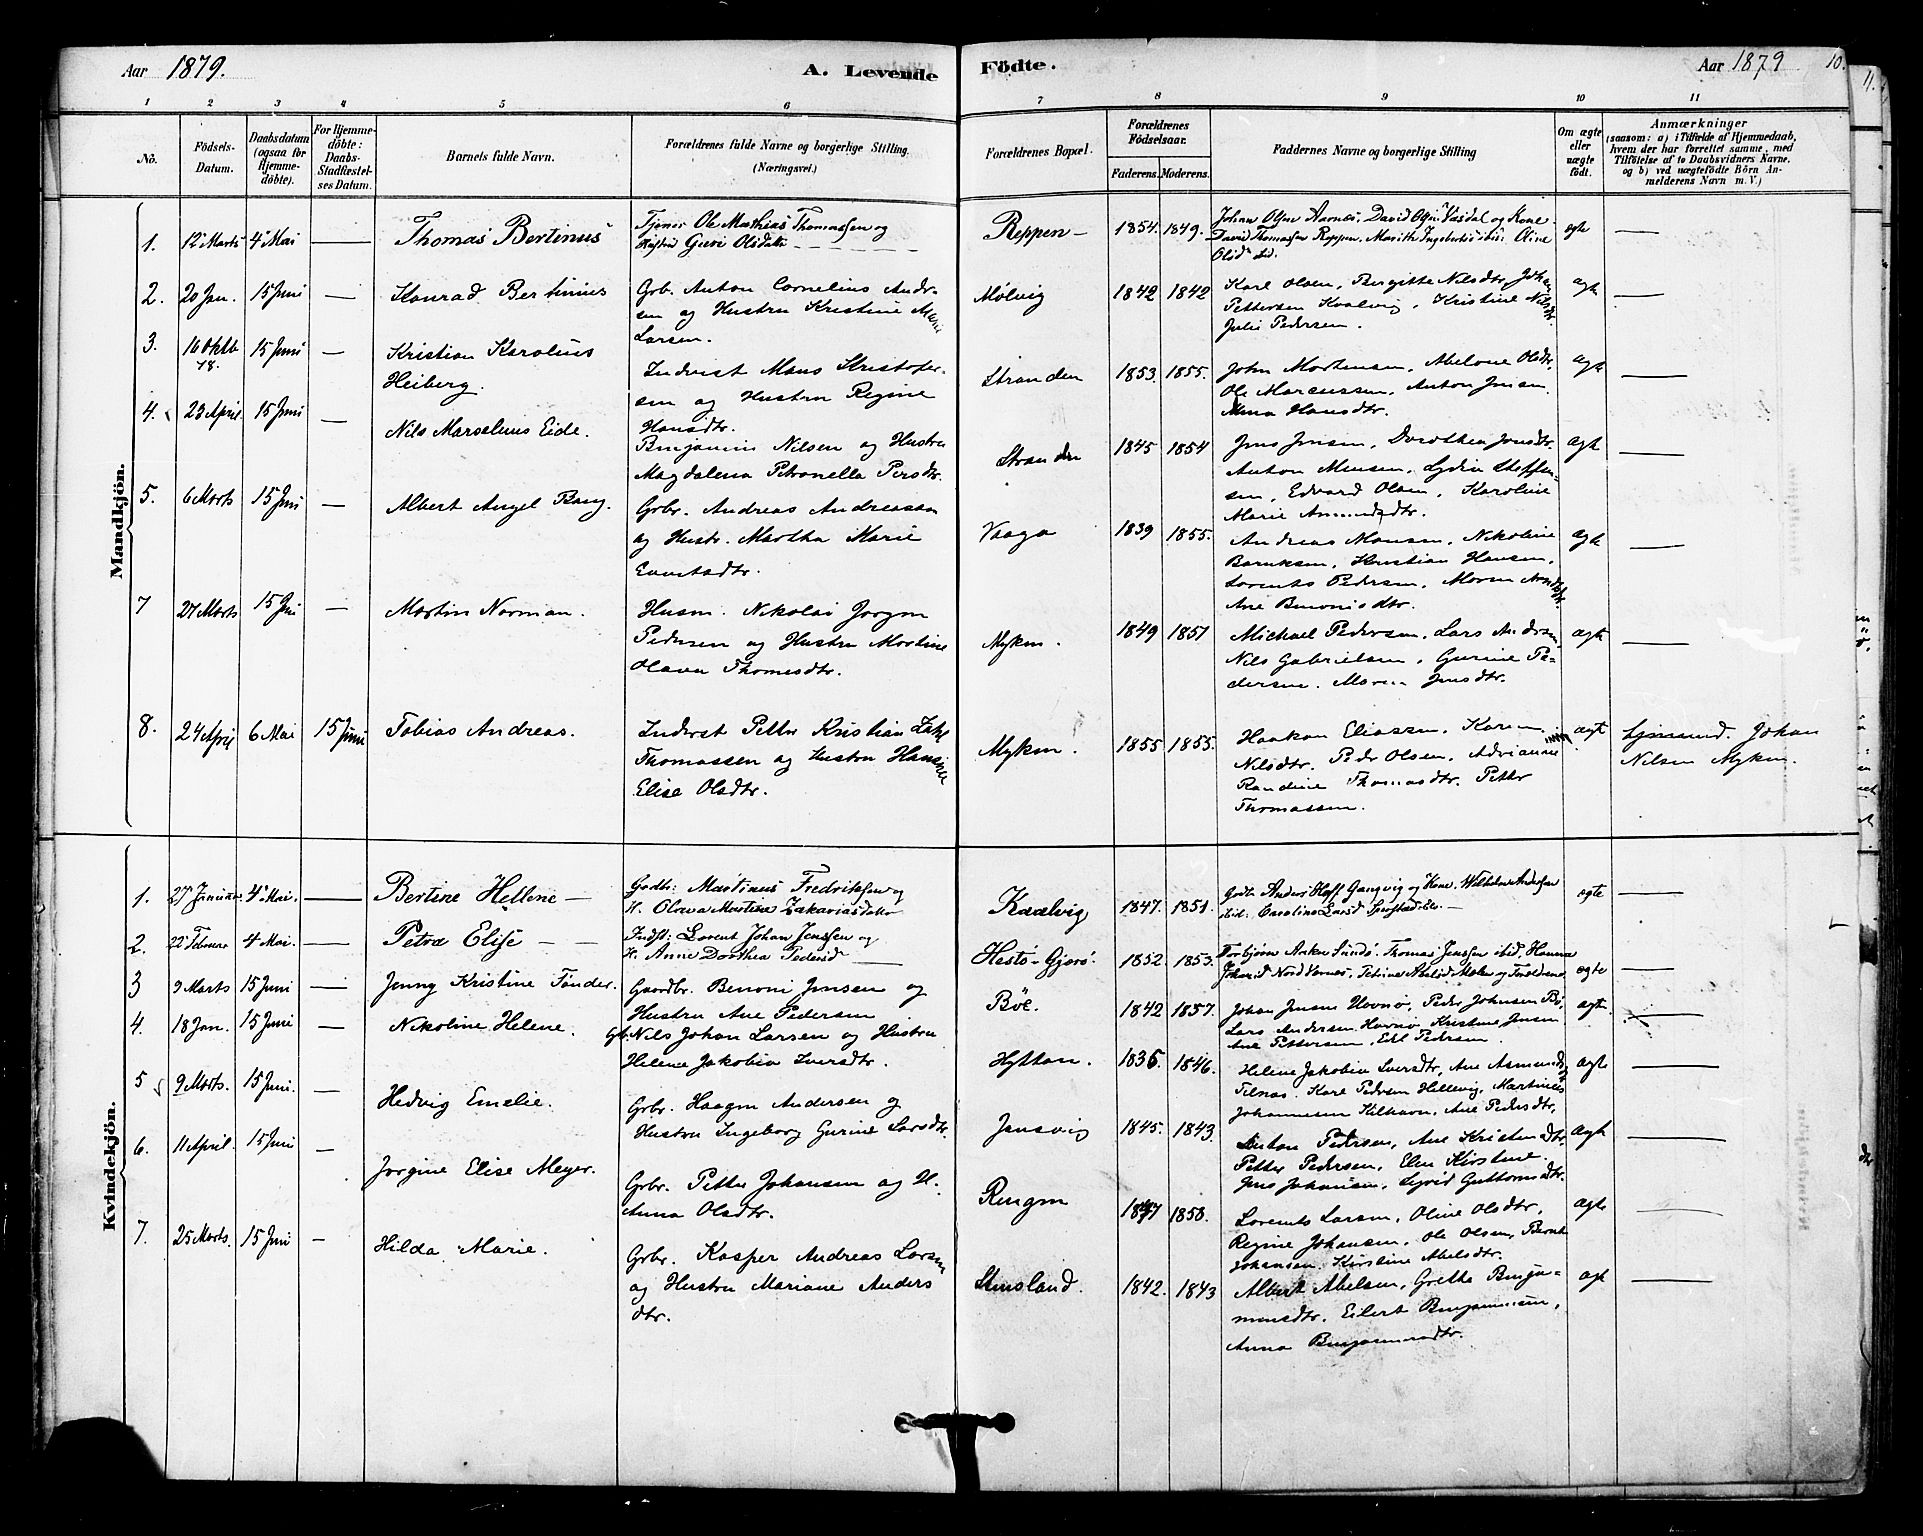 Aar 1879. A. Levende Födte. Aar 1879 10.
1 2 3 4 5 6 7 8 9 10 11
No.
Födsels-Datum.
Daabsdatum (ogsaa for Hjemme-döbte).
For Hjemme-döbte: Daabs-Stadfæstel-ses Datum.
Barnets fulde Navn.
Forældrenes fulde Navne og borgerlige Stilling (Næringsvei.)
Forældrenes Bopæl.
Forældrenes Födselsaar.
Faderens. Moderens.
Faddernes Navne og borgerlige Stilling
Om ægte eller uægte födt.
Anmærkninger
(saasom: a) i Tilfælde af Hjemmedaab,
hvem der har forrettet samme, med
Tilföielse af to Daabsvidners Navne,
og b) ved uægtefödte Börn An-
melderens Navn m. V.)
Mandkjön.
1. 12 Marts 4 Mai — Thomas Bertinus
Tjener Ole Mathias Thomassen og
Olsdatter
Reppen — 1854. 1849.
Johan Olsen Aarnes, David Olsen og Kone
David Thomassen Reppen,
ægte —
2. 20 Jan. 15 Juni — Konrad Bertinius
Grb. Anton Cornelius Andr-
sen og Hustru Kristine Marie
Larsen.
Molvig 1842 1842
Karl Olsen, Bergitte Nilsdtr, Johan
Pettersen Kvalvig, Kristine Nilsdtr.
Julie Pedersen.
ægte —
3. 16 Oktb 78. 15 Juni — Kristian Karolius
Heiberg.
Inderst Mons Kristofer-
sen og Hustru Regine
Hansdtr.
Stranden 1853. 1855.
John Mortensen, Abelone Olsdtr,
Ole Marcussen, Anton Jensen
Anna Hansdtr.
ægte —
4. 23 April. 15 Juni — Nils Marselius Eide.
Benjamin Nilsen og Hustru
Magdalena Petronella Persdtr.
Stranden 1845 1854
Jens Jensen, Dorothea Jensdtr.
Anton Monsen, Lydia Steffen-
sen, Edvard Olsen, Karoline
Marie Amundsdtr.
Ægte —
5. 6 Marts 15 Juni — Albert Angel Bang.
Grbr. Andreas Andreassen
og Hustr. Martha Marie
Evertsdtr.
Vaaga 1839 1855.
Andreas Monsen, Nikoline
Baruksen, Kristian Hansen,
Lorents Pedersen, Maren
Ane Benonisdtr.
Ægte —
7 27 Marts 15 Juni — Martin Norman.
Husm. Nikolai Jorgen
Pedersen og Hustru Martine
Olava Thomesdtr.
Myken. 1849 1851
Michael Pedersen, Lars Andersen,
Nils Gabrielsen, Gurine Pe-
dersen. Maren Jensdtr.
ægte —
8. 24 April 6 Mai 15 Juni Tobias Andreas.
Inderst Petter Kristian
Thomassen og Hustru Hansine
Elise Olsdtr.
Myken. 1855 1855.
Haakon Eliassen, Karen
Nilsdtr. Peder Olsen, Adrianne
Randine Thomasdtr. Petter
Thomassen.
ægt. Johan
Nilsen Myken.
Kvindekjön.
1. 27 Januar 4 Mai. — Bertine Hellene —
Gaardb: Martinus Fredriksen og
H. Olava Martine Zakariasdatter
Kvalvig 1847. 1851.
Anders Gangvig og Kone, Wilhelm Andersen
ægte —
2. 22 Februar 4 Mai. — Petra Elise — —
Indst: Lorents Johan Jenssen og
H. Anne Dorthea Pedersd —
Hestö-Gjerö. 1852. 1853.
Torbjörn Anker Sundö. Thomas Jenssen ibid, Hanna
ægte —
3 9 Marts 15 Juni — Jenny Kristine Tönder.
Gaardbr. Benoni Jensen og
Hustru Ane Pedersen
Böe. 1842 1857.
Johan Jensen Havnö, Peder Johnsen Bö,
Lars Andersen Havnö, Kristine Jensen
Ane Pettersen, Pedersen.
ægt. —
4. 18 Jan. 15 Juni — Nikoline Helene.
Grb. Nils Johan Larsen og Hustru
Helene Jakobia Iversdtr.
Hyttan. 1836 1846.
Helene Jakobia Iversdtr, Ane Asmundsdtr
Telnæs. Karl Pedersen Hellevig, Martinus
Johannesen Kilhavn. Ane Pedersdtr.
ægte —
5 9 Marts. 15 Juni. — Hedvig Emelie.
Grbr. Haagen Andersen og
Hustru Ingeborg Gurine Larsdtr.
Jensvig 1845. 1843.
Anton Pedersen, Ane Kristendtr,
Petter Pedersen, Elen Kirstine.
Jens Johansen, Sigrid Guttormsdtr.
Ægte —
6. 11 April. 15 Juni — Jorgine Elise Meyer.
Grbr. Petter Johansen og H.
Anna Olsdtr.
Ringen 1847 1858.
Lorents Larsen, Oline Olsdtr,
Regine Johansen, Ole Olsen, Bernt
Johansen. Kirstine Abelsdtr.
Ægte —
7. 25 Marts. 15 Juni — Hilda Marie.
Grbr. Kasper Andreas Larsen
og Hustru Mariane Anders
dtr.
Stensland. 1842. 1843
Albert Abelsen, Grethe Benja-
mensdtr. Eilert Benjaminsen,
Anna Benjaminsdtr.
ægt —